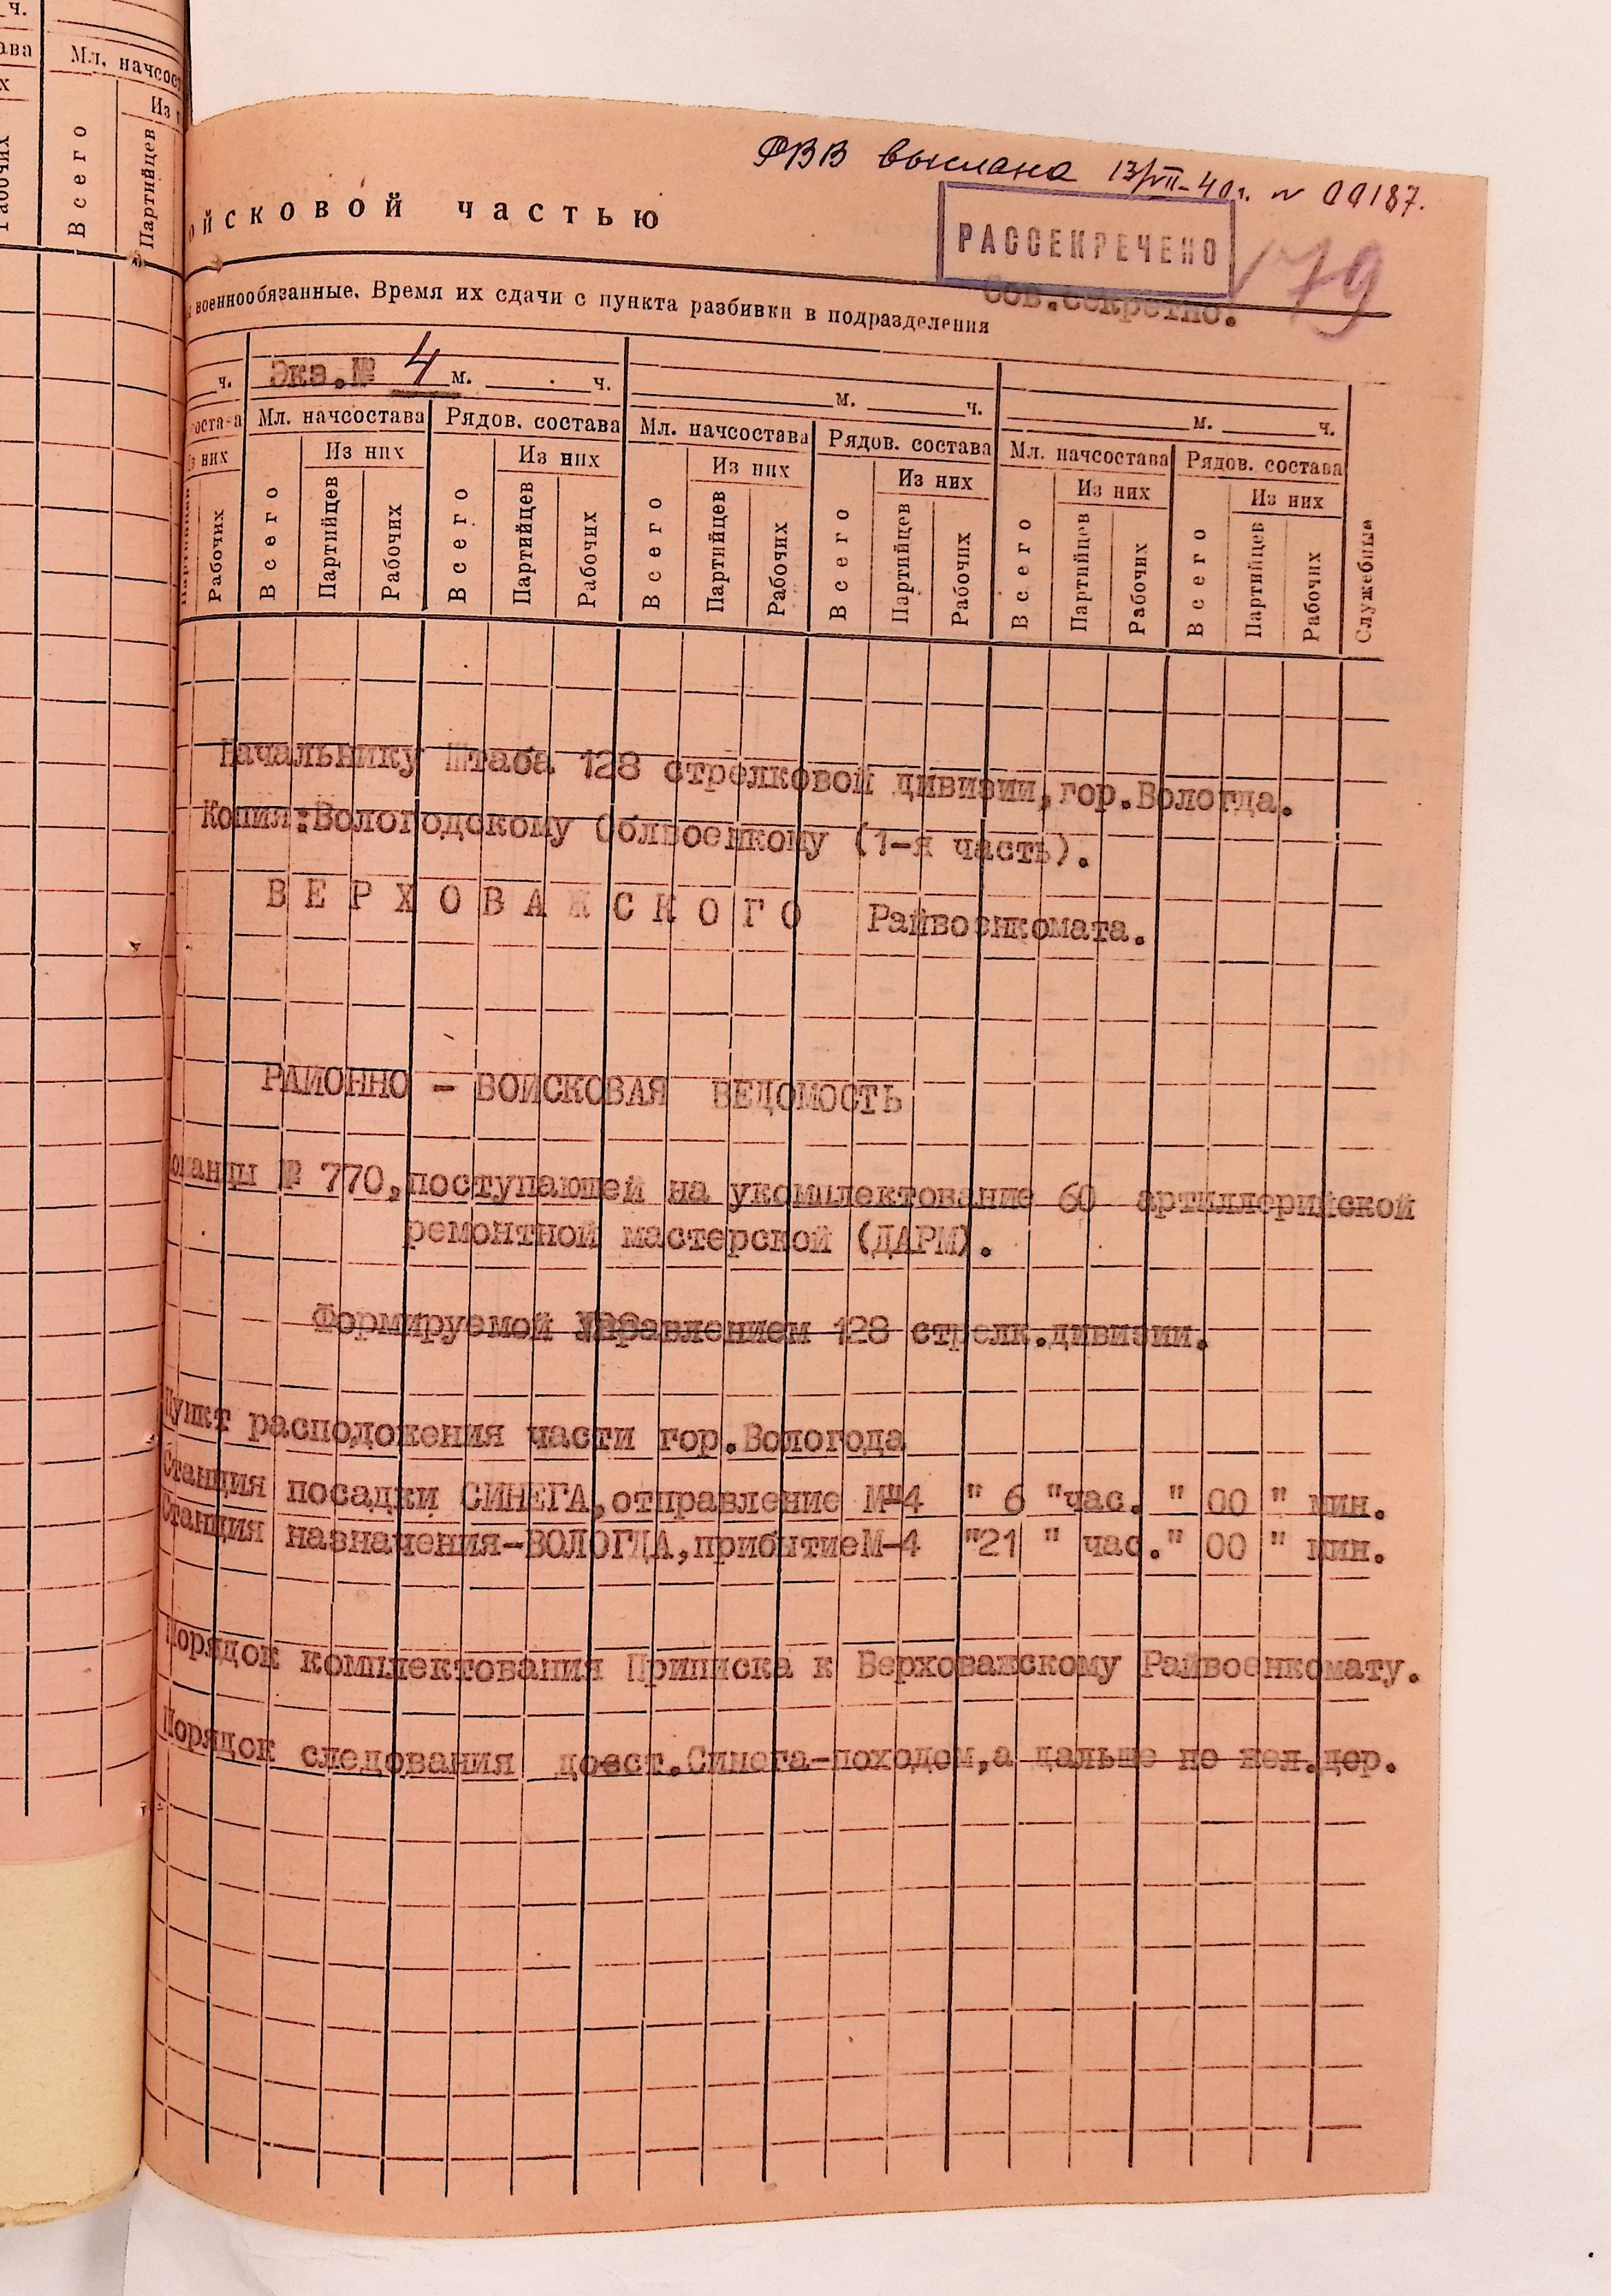 РВВ выслана 13/VII-40г. № 00187.
ойсковой частью
РАССЕКРЕЧЕНО
Сов.секретно.
79
военнообязанные. Время их сдачи с пункта разбивки в подразделения
ч. Экз.№ 4 м. ч. м. ч. м. ч.
Мл. начсостава Рядов. состава Мл. начсостава Рядов. состава Мл. начсостава Рядов. состава
Из них Из них Из них Из них Из них Из них Из них
Рабочих Всего Партийцев Рабочих Всего Партийцев Рабочих Всего Партийцев Рабочих Всего Партийцев Рабочих Всего Партийцев Рабочих Всего Партийцев Рабочих Служебные
Начальнику Штаба 128 стрелковой дивизии,гор.Вологда.
Копия:Вологодскому Облвоенкому (1-я часть).
ВЕРХОВАЖСКОГО Райвоенкомата.
РАЙОННО - ВОЙСКОВАЯ ВЕДОМОСТЬ
команды № 770,поступающей на укомплектование 60 артиллерийской
ремонтной мастерской (ДАРМ).
Формируемой Управлением 128 стрелк.дивизии.
Пункт расположения части гор.Вологода
Станция посадки СИНЕГА,отправление М-4 " 6 "час. " 00 " мин.
Станция назначения-ВОЛОГДА,прибытиеМ-4 "21 " час." 00 " мин.
Порядок комплектования Приписка к Верховажскому Райвоенкомату.
Порядок следования до ст.Синега-походом,а дальше по жел.дор.
ч.
Мл. начсост
Из
Всего
Партийцев
Рабочих